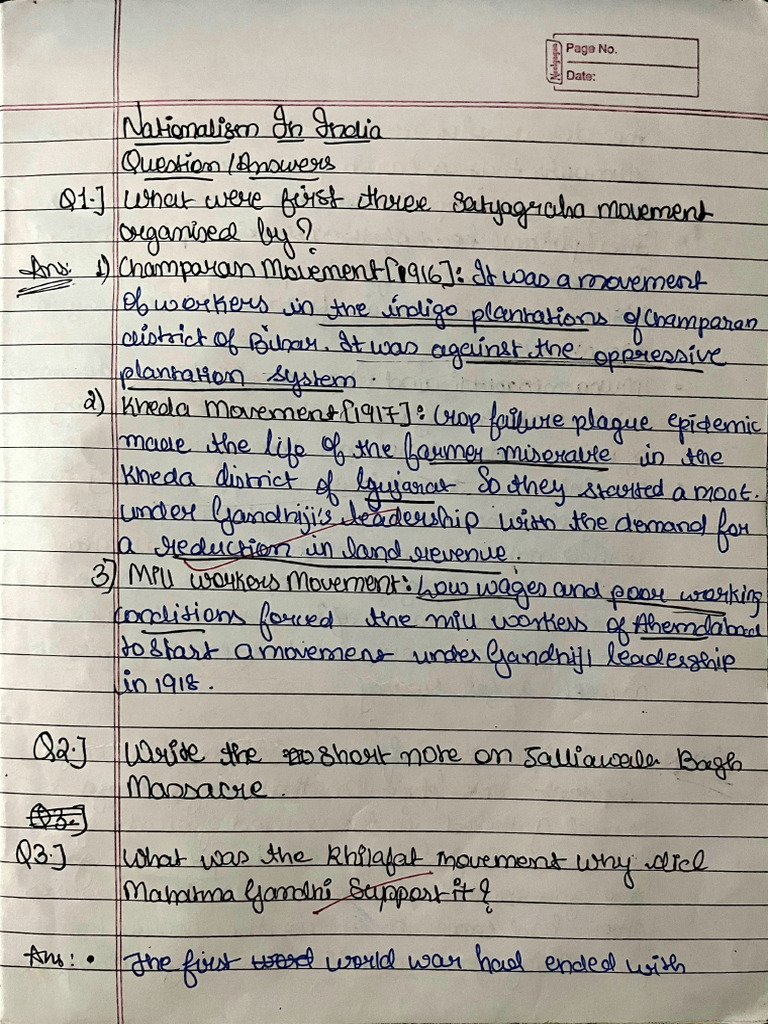 Page No.
Date:
Nationalism In India
Question/Answers
Q1.] What were first three satyagraha movement
organised by?
Ans: 1) Champaran Movement [1916]: It was a movement
of workers in the indigo plantations of Champaran
district of Bihar. It was against the oppressive
plantation system.
2) Kheda Movement [1917]: Crop failure plague epidemic
made the life of the farmer miserable in the
Kheda district of Gujarat So they started a mov̇t.
under Gandhiji's leadership with the demand for
a reduction in land revenue.
3] Mill workers Movement: Low wages and poor working
conditions forced the mill workers of Ahemdabad
to start a movement under Gandhiji leadership
in 1918.
Q2.] Write the short note on Jalliawala Bagh
Massacre.
Q3.]
Q3.] What was the Khilafat movement why did
Mahatma Gandhi Support it?
Ans: • The first world war had ended with